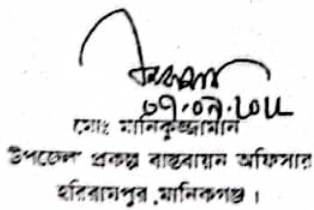 ০৭.০৯.২০১১
মোঃ মানিকুজ্জামান
উপজেলা প্রকল্প বাস্তবায়ন অফিসার
হরিরামপুর, মানিকগঞ্জ।